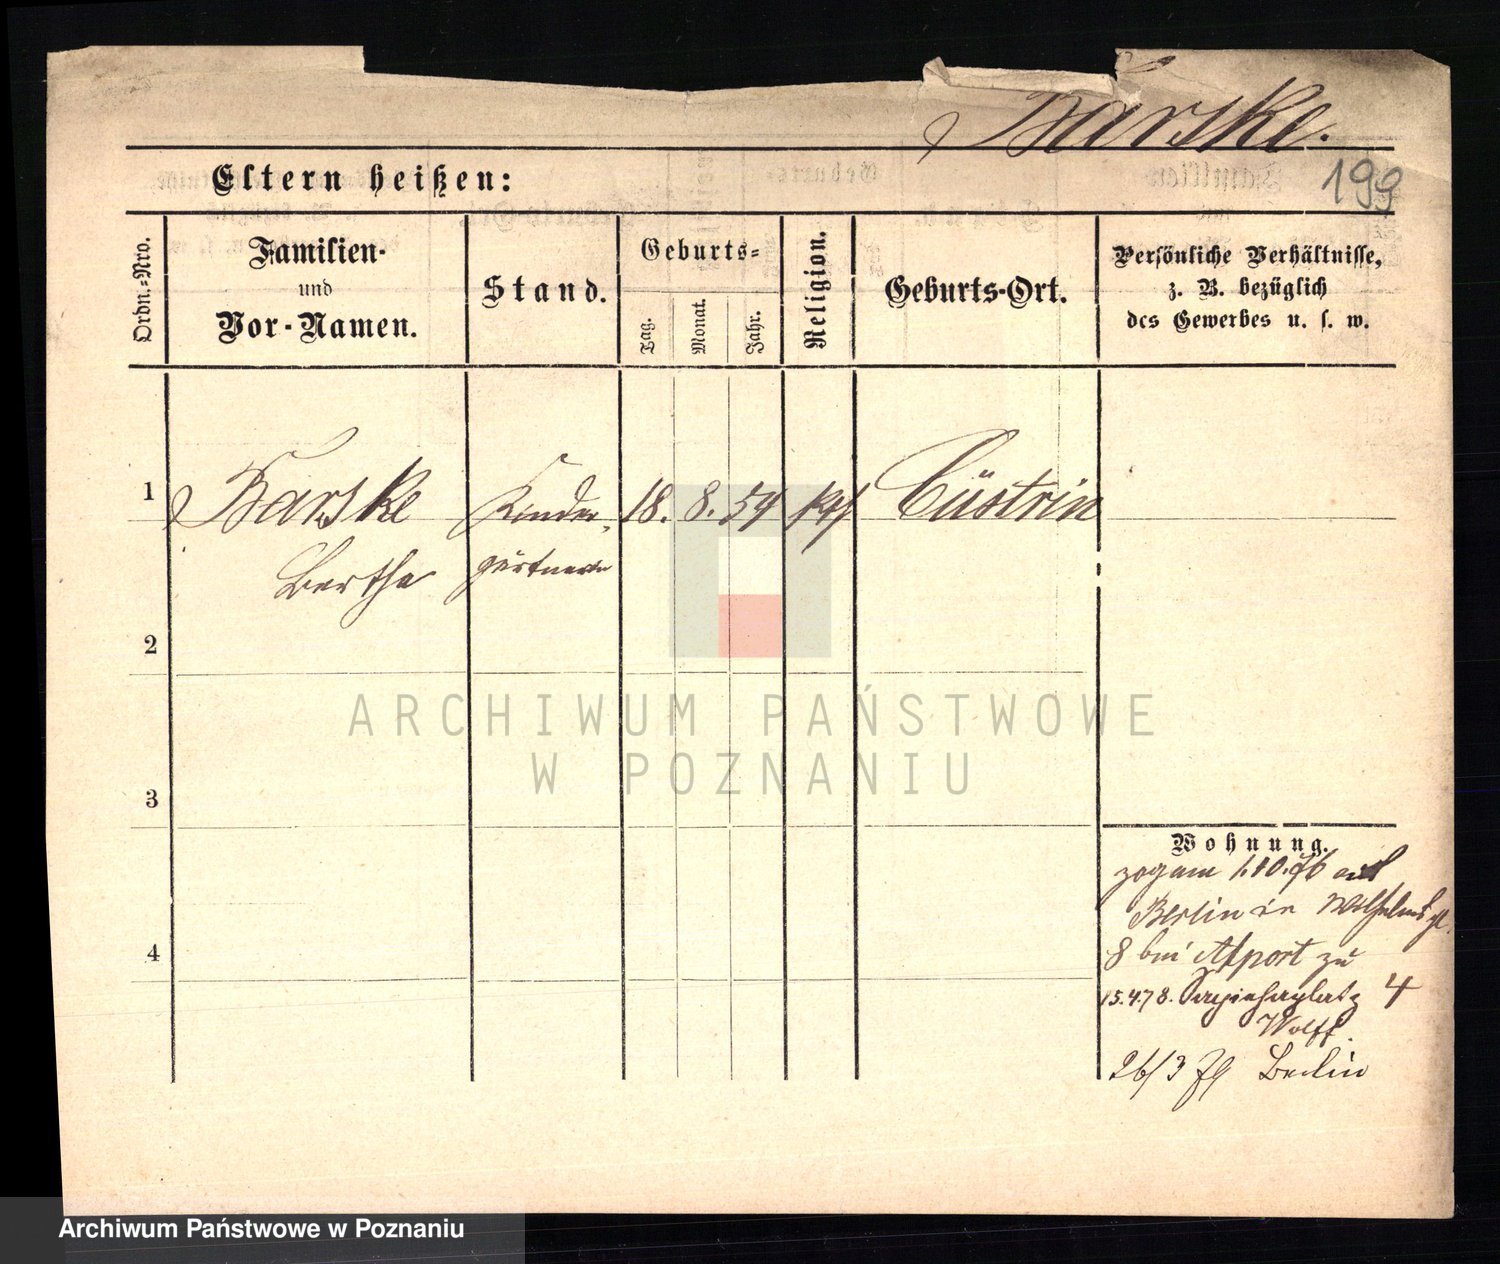 Barske.
199
Eltern heißen:
Ordn.-Nro.
Familien-
und
Vor-Namen.
Stand.
Geburts-
Tag.
Monat.
Jahr.
Religion.
Geburts-Ort.
Persönliche Verhältnisse,
z. B. bezüglich
des Gewerbes u. s. w.
1
Barske
Bertha
Kinder-
gärtnerin
18. 8. 54
Cüstrin
2
3
4
Wohnung.
zog am 1.10.76 aus
Berlin in Wilhelmspl.
8 bei Asport zu
15.4.78. Sapiehaplatz 4
Wolff.
26/3 79 Berlin
ARCHIWUM PAŃSTWOWE
W POZNANIU
Archiwum Państwowe w Poznaniu